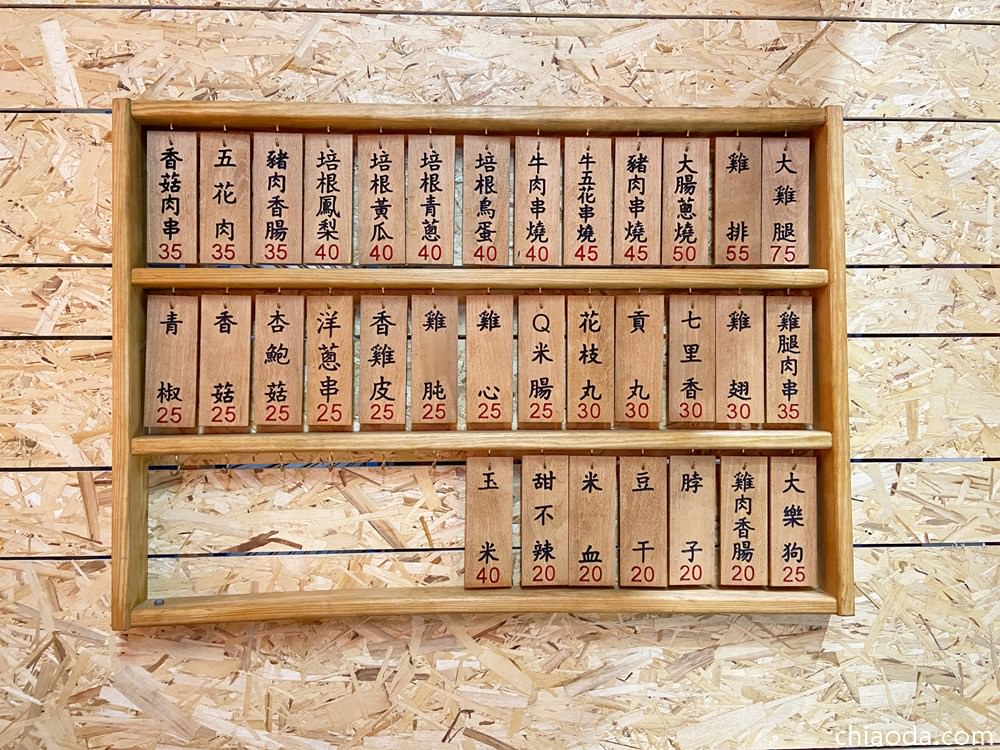 大雞腿 75
雞排 55
大腸蔥燒 50
豬肉串燒 45
牛五花串燒 45
牛肉串燒 40
培根鳥蛋 40
培根青蔥 40
培根黃瓜 40
培根鳳梨 40
豬肉香腸 35
五花肉 35
香菇肉串 35
雞腿肉串 35
雞翅 30
七里香 30
貢丸 30
花枝丸 30
Q米腸 25
雞心 25
雞肫 25
香雞皮 25
洋蔥串 25
杏鮑菇 25
香菇 25
青椒 25
大樂狗 25
雞肉香腸 20
脖子 20
豆干 20
米血 20
甜不辣 20
玉米 40
chiaoda.com